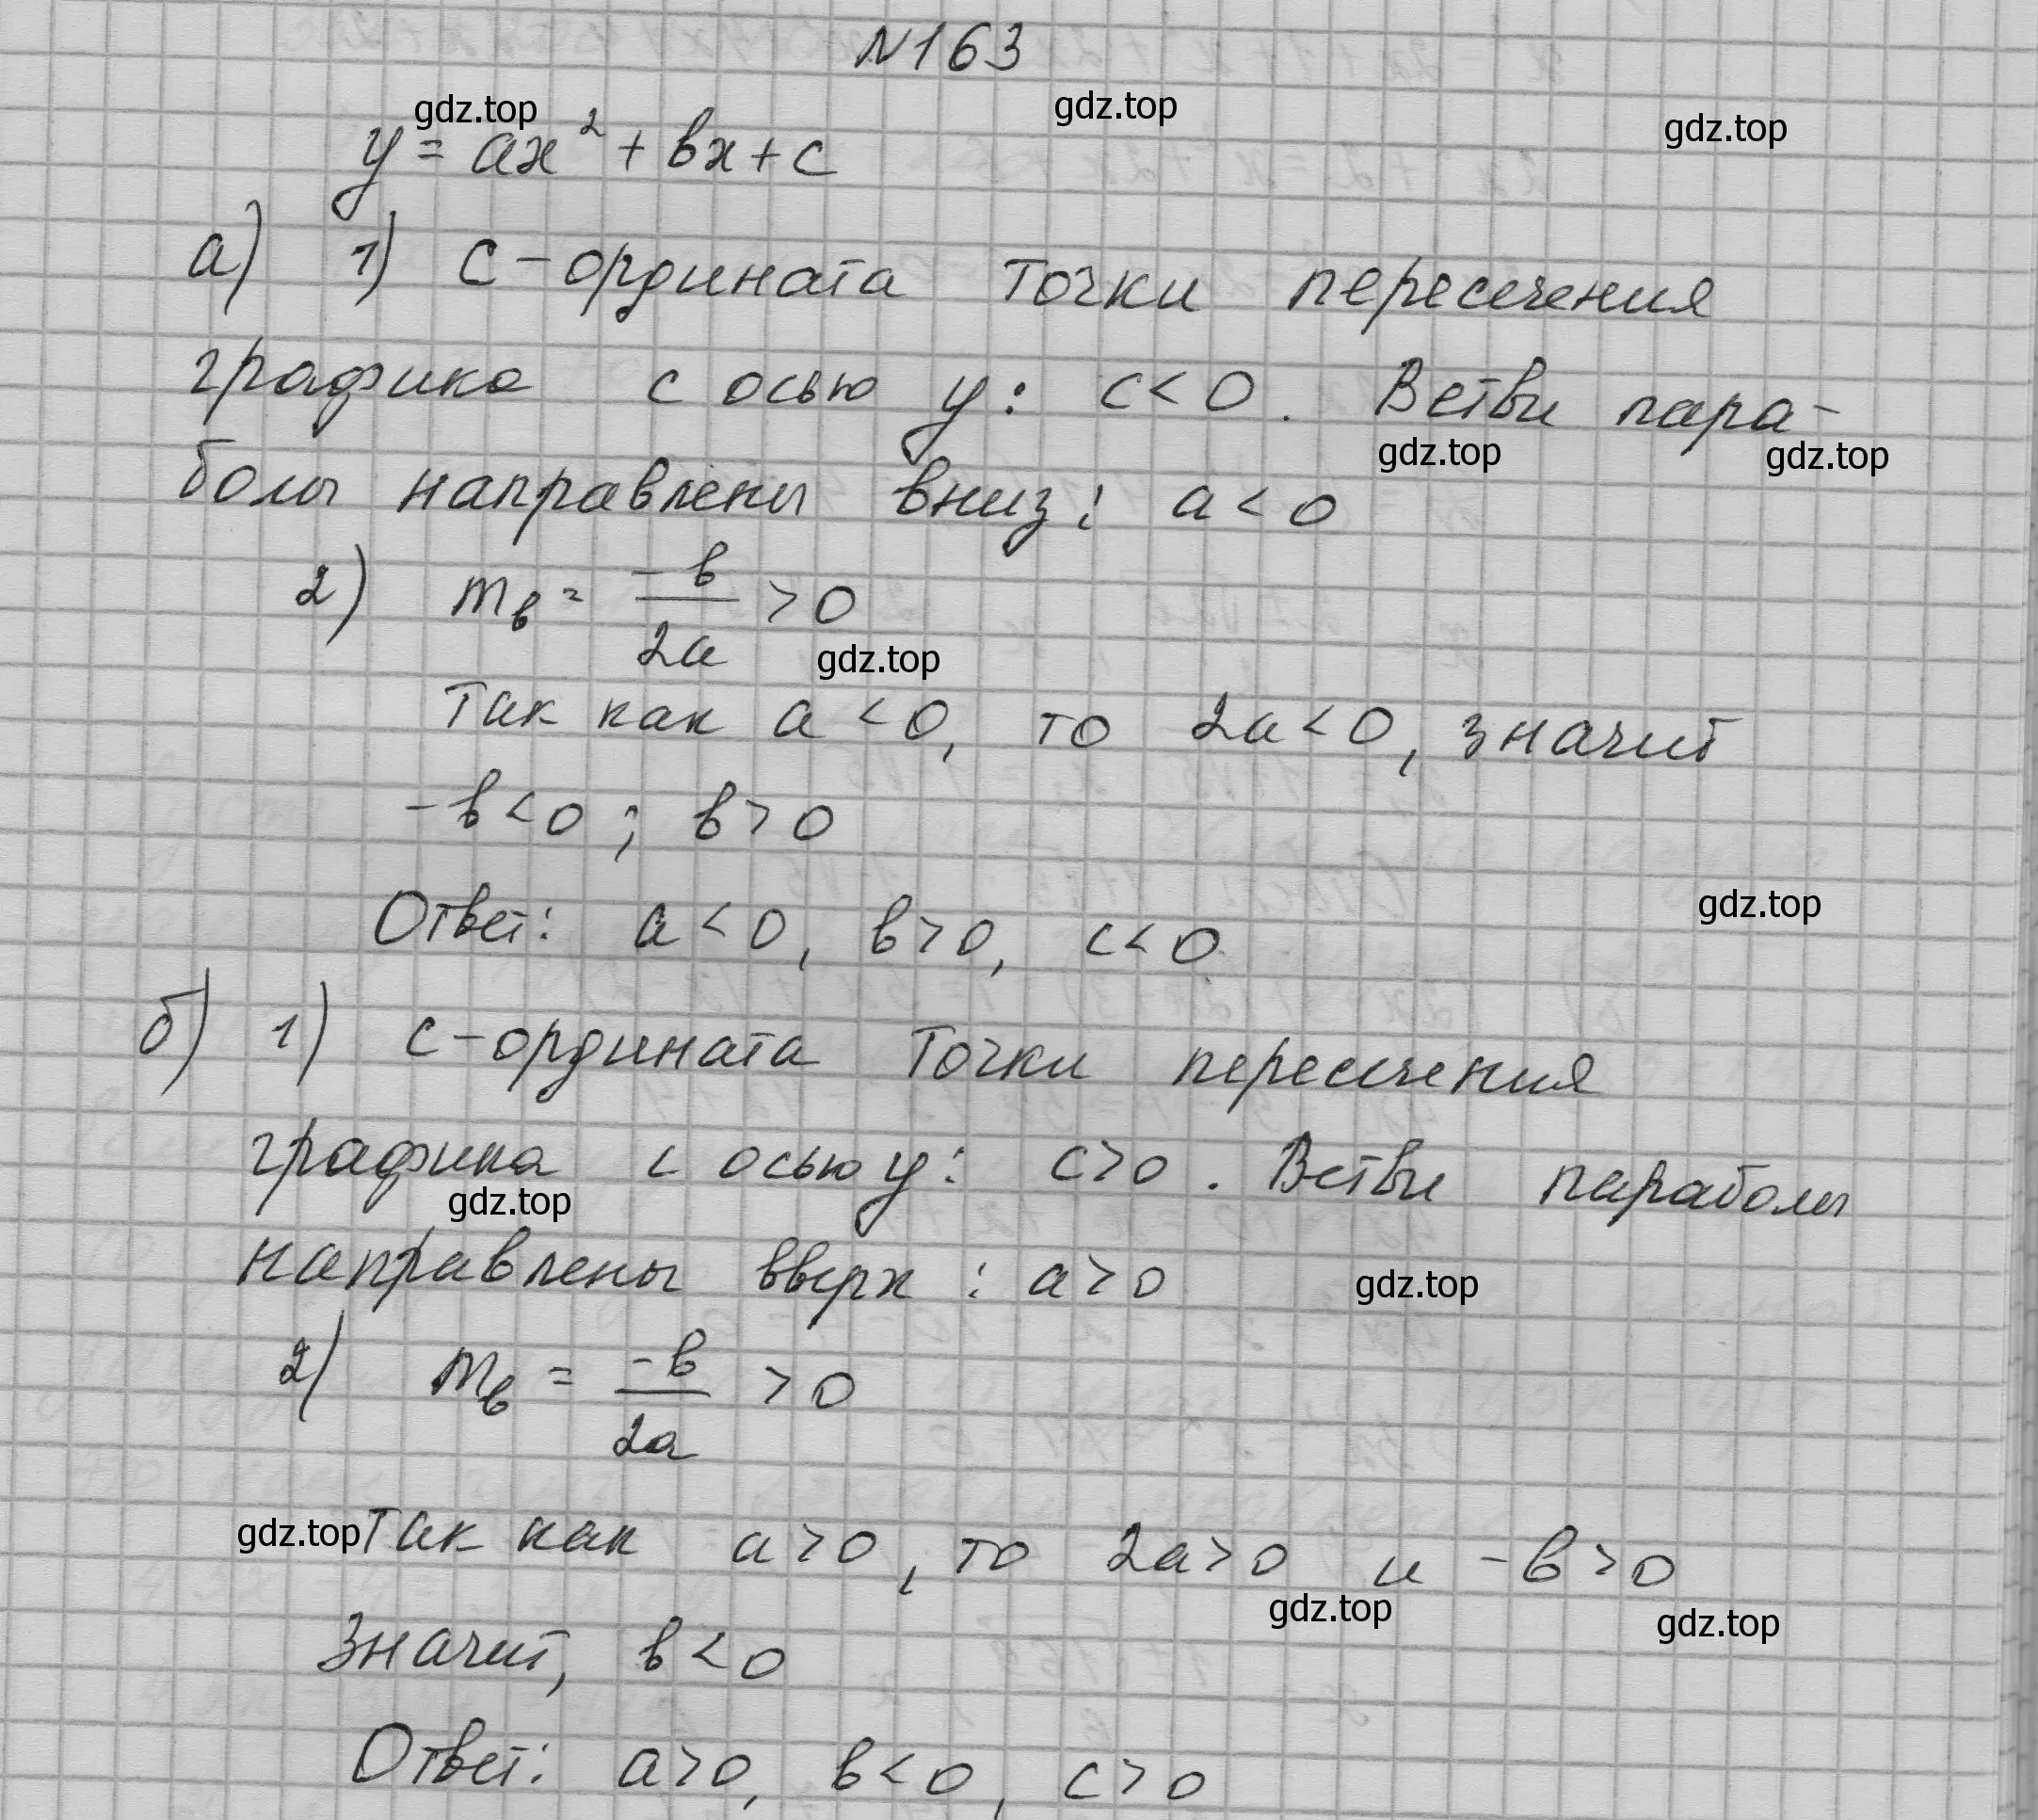 N163
gdz.top gdz.top gdz.top
y = ax² + bx + c
a) 1) c - ордината точки пересечения
графика с осью y: c < 0. Ветви пара-
gdz.top gdz.top
болы направлены вниз: a < 0
2) mв = -b/2a > 0
gdz.top
Так как a < 0, то 2a < 0, значит
-b < 0; b > 0
Ответ: a < 0, b > 0, c < 0
gdz.top
б) 1) c - ордината точки пересечения
графика с осью y: c > 0. Ветви параболы
gdz.top
направлены вверх: a > 0
gdz.top
2) mв = -b/2a > 0
gdz.top Так как a > 0, то 2a > 0 и -b > 0
gdz.top gdz.top
Значит, b < 0
Ответ: a > 0, b < 0, c > 0